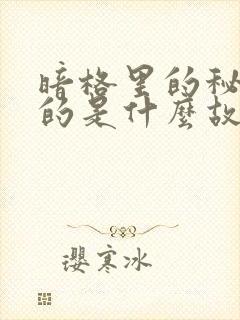 暗格里的秘
的是什麼故
瓔寒冰